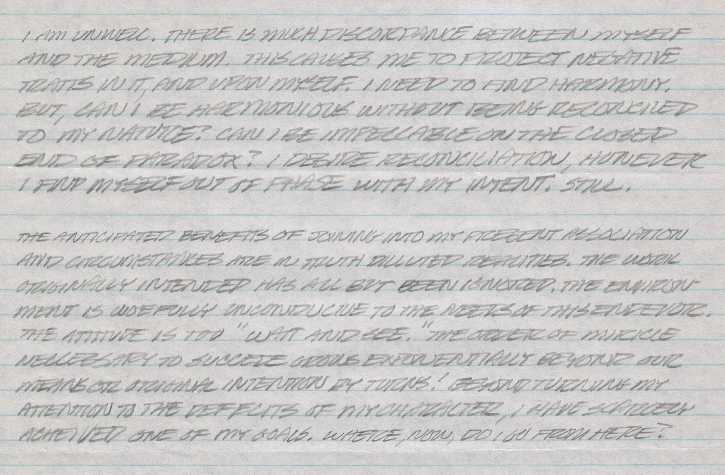 I AM UNWELL. THERE IS MUCH DISCORDANCE BETWEEN MYSELF
AND THE MEDIUM. THIS CAUSES ME TO PROJECT NEGATIVE
TRAITS IN IT, AND UPON MYSELF. I NEED TO FIND HARMONY.
BUT, CAN I BE HARMONIOUS WITHOUT BEING RECONCILED
TO MY NATURE? CAN I BE IMPECCABLE ON THE CLOSED
END OF PARADOX? I DESIRE RECONCILIATION, HOWEVER
I FIND MYSELF OUT OF PHASE WITH MY INTENT. STILL.
THE ANTICIPATED BENEFITS OF JOINING INTO MY PRESENT ASSOCIATION
AND CIRCUMSTANCES ARE IN TRUTH DILUTED REALITIES. THE WORK
ORIGINALLY INTENDED HAS ALL BUT BEEN IGNORED. THE ENVIRON-
MENT IS WOEFULLY UNCONDUCIVE TO THE NEEDS OF THIS ENDEVOR.
THE ATTITUDE IS TOO "WAIT AND SEE." THE ORDER OF MIRICLE
NECCESSARY TO SUCCEDE GROWS EXPONENTIALLY BEYOND OUR
MEANS OR ORIGINAL INTENTION BY TURNS! BEYOND TURNING MY
ATTENTION TO THE DEFECITS OF MY CHARACTER, I HAVE SCARCELY
ACHEIVED ONE OF MY GOALS. WHERE, NOW, DO I GO FROM HERE?